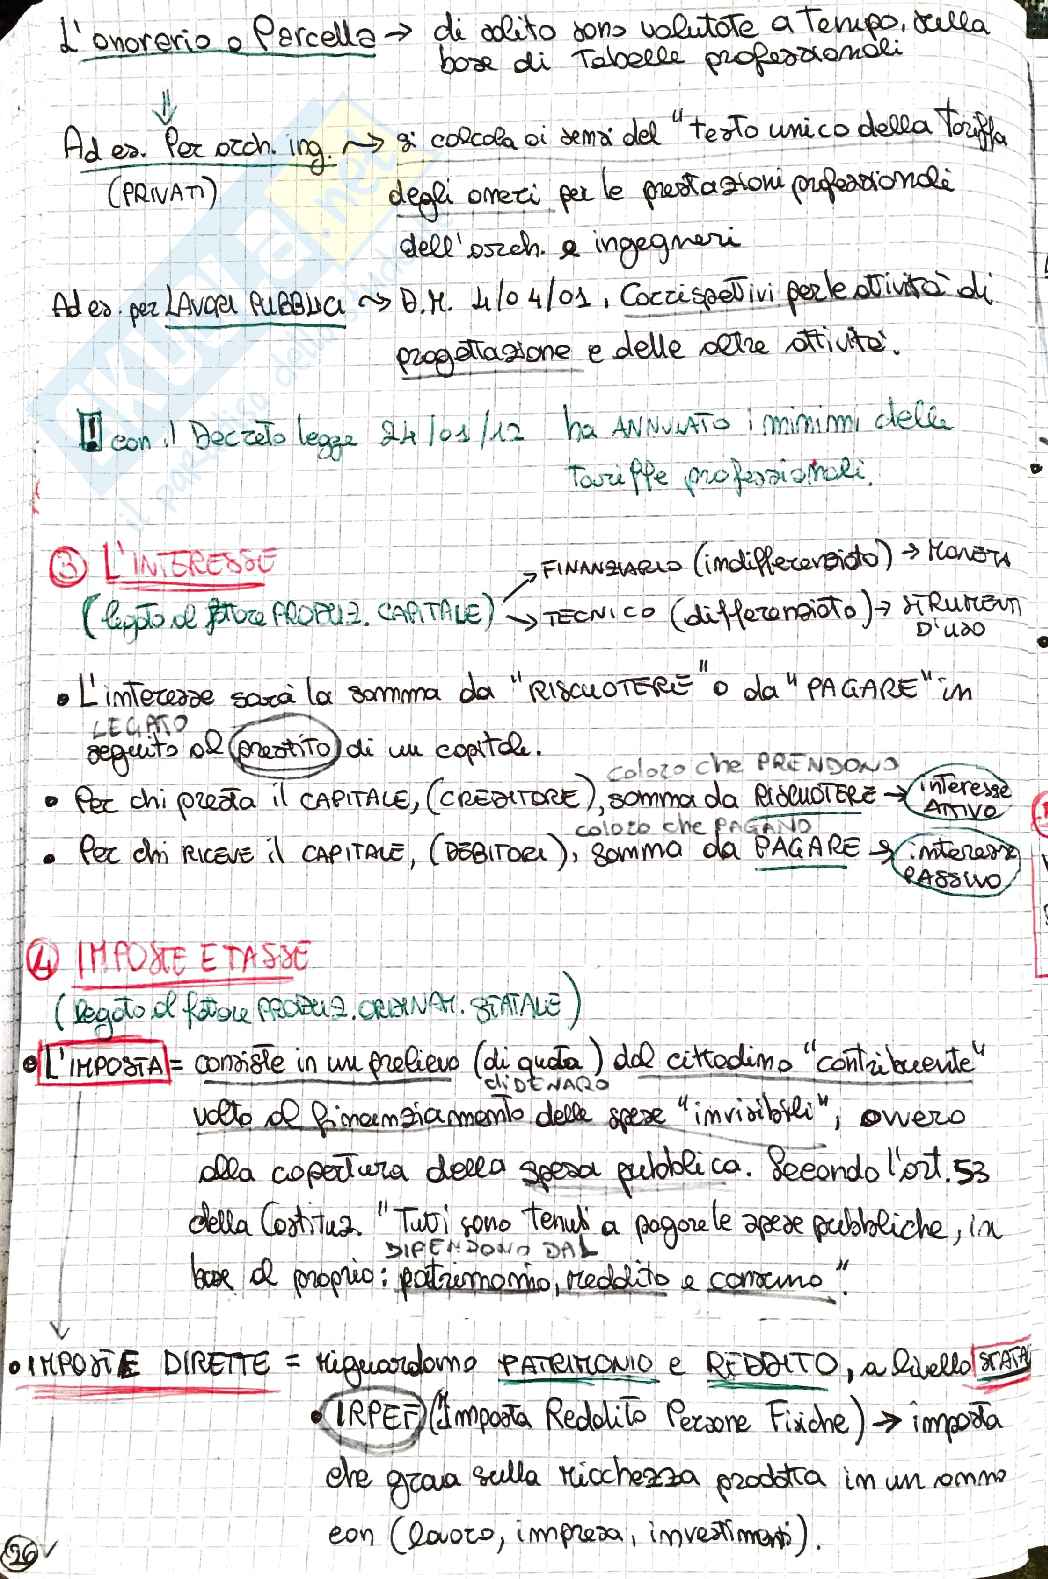 L'onorario o Parcella → di solito sono valutate a tempo, sulla
base di Tabelle professionali
Ad es. Per arch. ing. → si calcola ai sensi del "testo unico della Tariffa
(PRIVATI) degli oneri per le prestazioni professionali
dell'arch. e ingegneri
Ad es. per LAVORI PUBBLICI → D.M. 4/04/01, Corrispettivi per le attività di
progettazione e delle altre attività.
!! con il Decreto legge 24/01/12 ha ANNULATO i minimi delle
tariffe professionali.
③ L'INTERESSE
→ FINANZIARIO (indifferenziato) → MONETA
(legato al fattore PRODUZ. CAPITALE) → TECNICO (differenziato) → STRUMENTI
D'USO
• L'interesse sarà la somma da "RISCUOTERE" o da "PAGARE" in
LEGATO
seguito al prestito di un capitale.
coloro che PRENDONO
• Per chi presta il CAPITALE, (CREDITORE), somma da RISCUOTERE → interesse
ATTIVO
coloro che PAGANO
• Per chi RICEVE il CAPITALE, (DEBITORI), somma da PAGARE → interesse
PASSIVO
④ IMPOSTE E TASSE
(legato al fattore PRODUZ. ORDINAM. STATALE)
• L'IMPOSTA = consiste in un prelievo (di quota) dal cittadino "contribuente"
di DENARO
volto al finanziamento delle spese "invisibili", ovvero
alla copertura della spesa pubblica. Secondo l'art. 53
della Costituz. "Tutti sono tenuti a pagare le spese pubbliche, in
DIPENDONO DAL
base al proprio: patrimonio, reddito e consumo".
• IMPOSTE DIRETTE = riguardano PATRIMONIO e REDDITO, a livello STATA
• IRPEF (Imposta Reddito Persone Fisiche) → imposta
che grava sulla ricchezza prodotta in un anno
con (lavoro, impresa, investimenti).
26
il paradiso dello